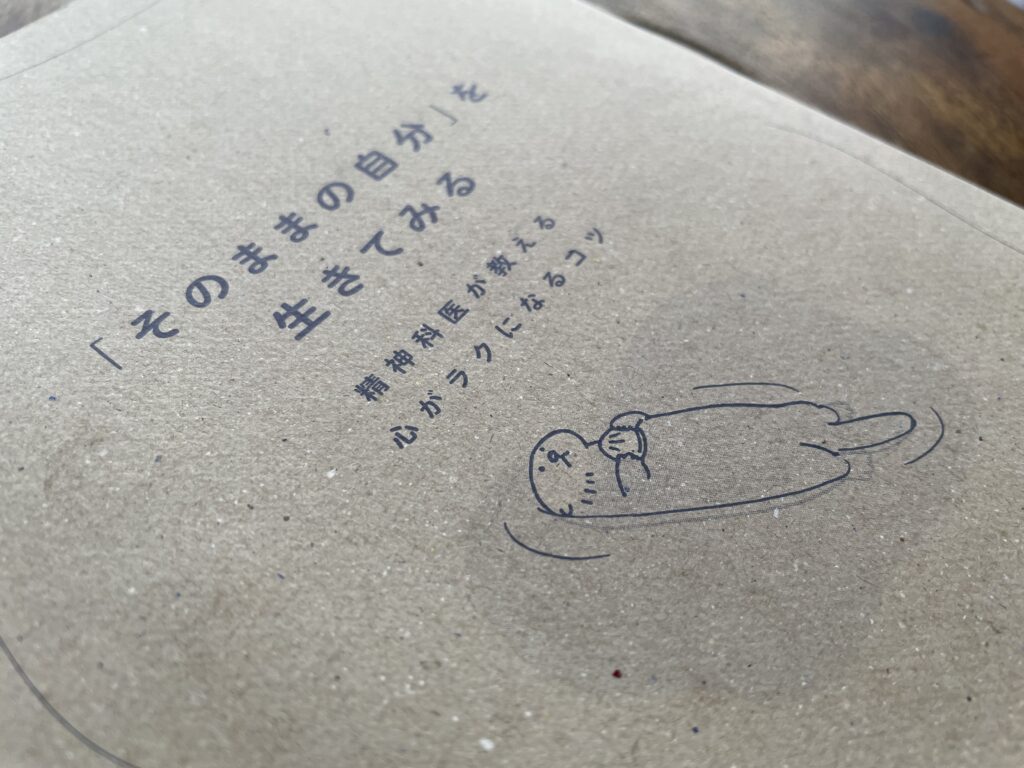 「そのままの自分」を
生きてみる
精神科医が教える
心がラクになるコツ